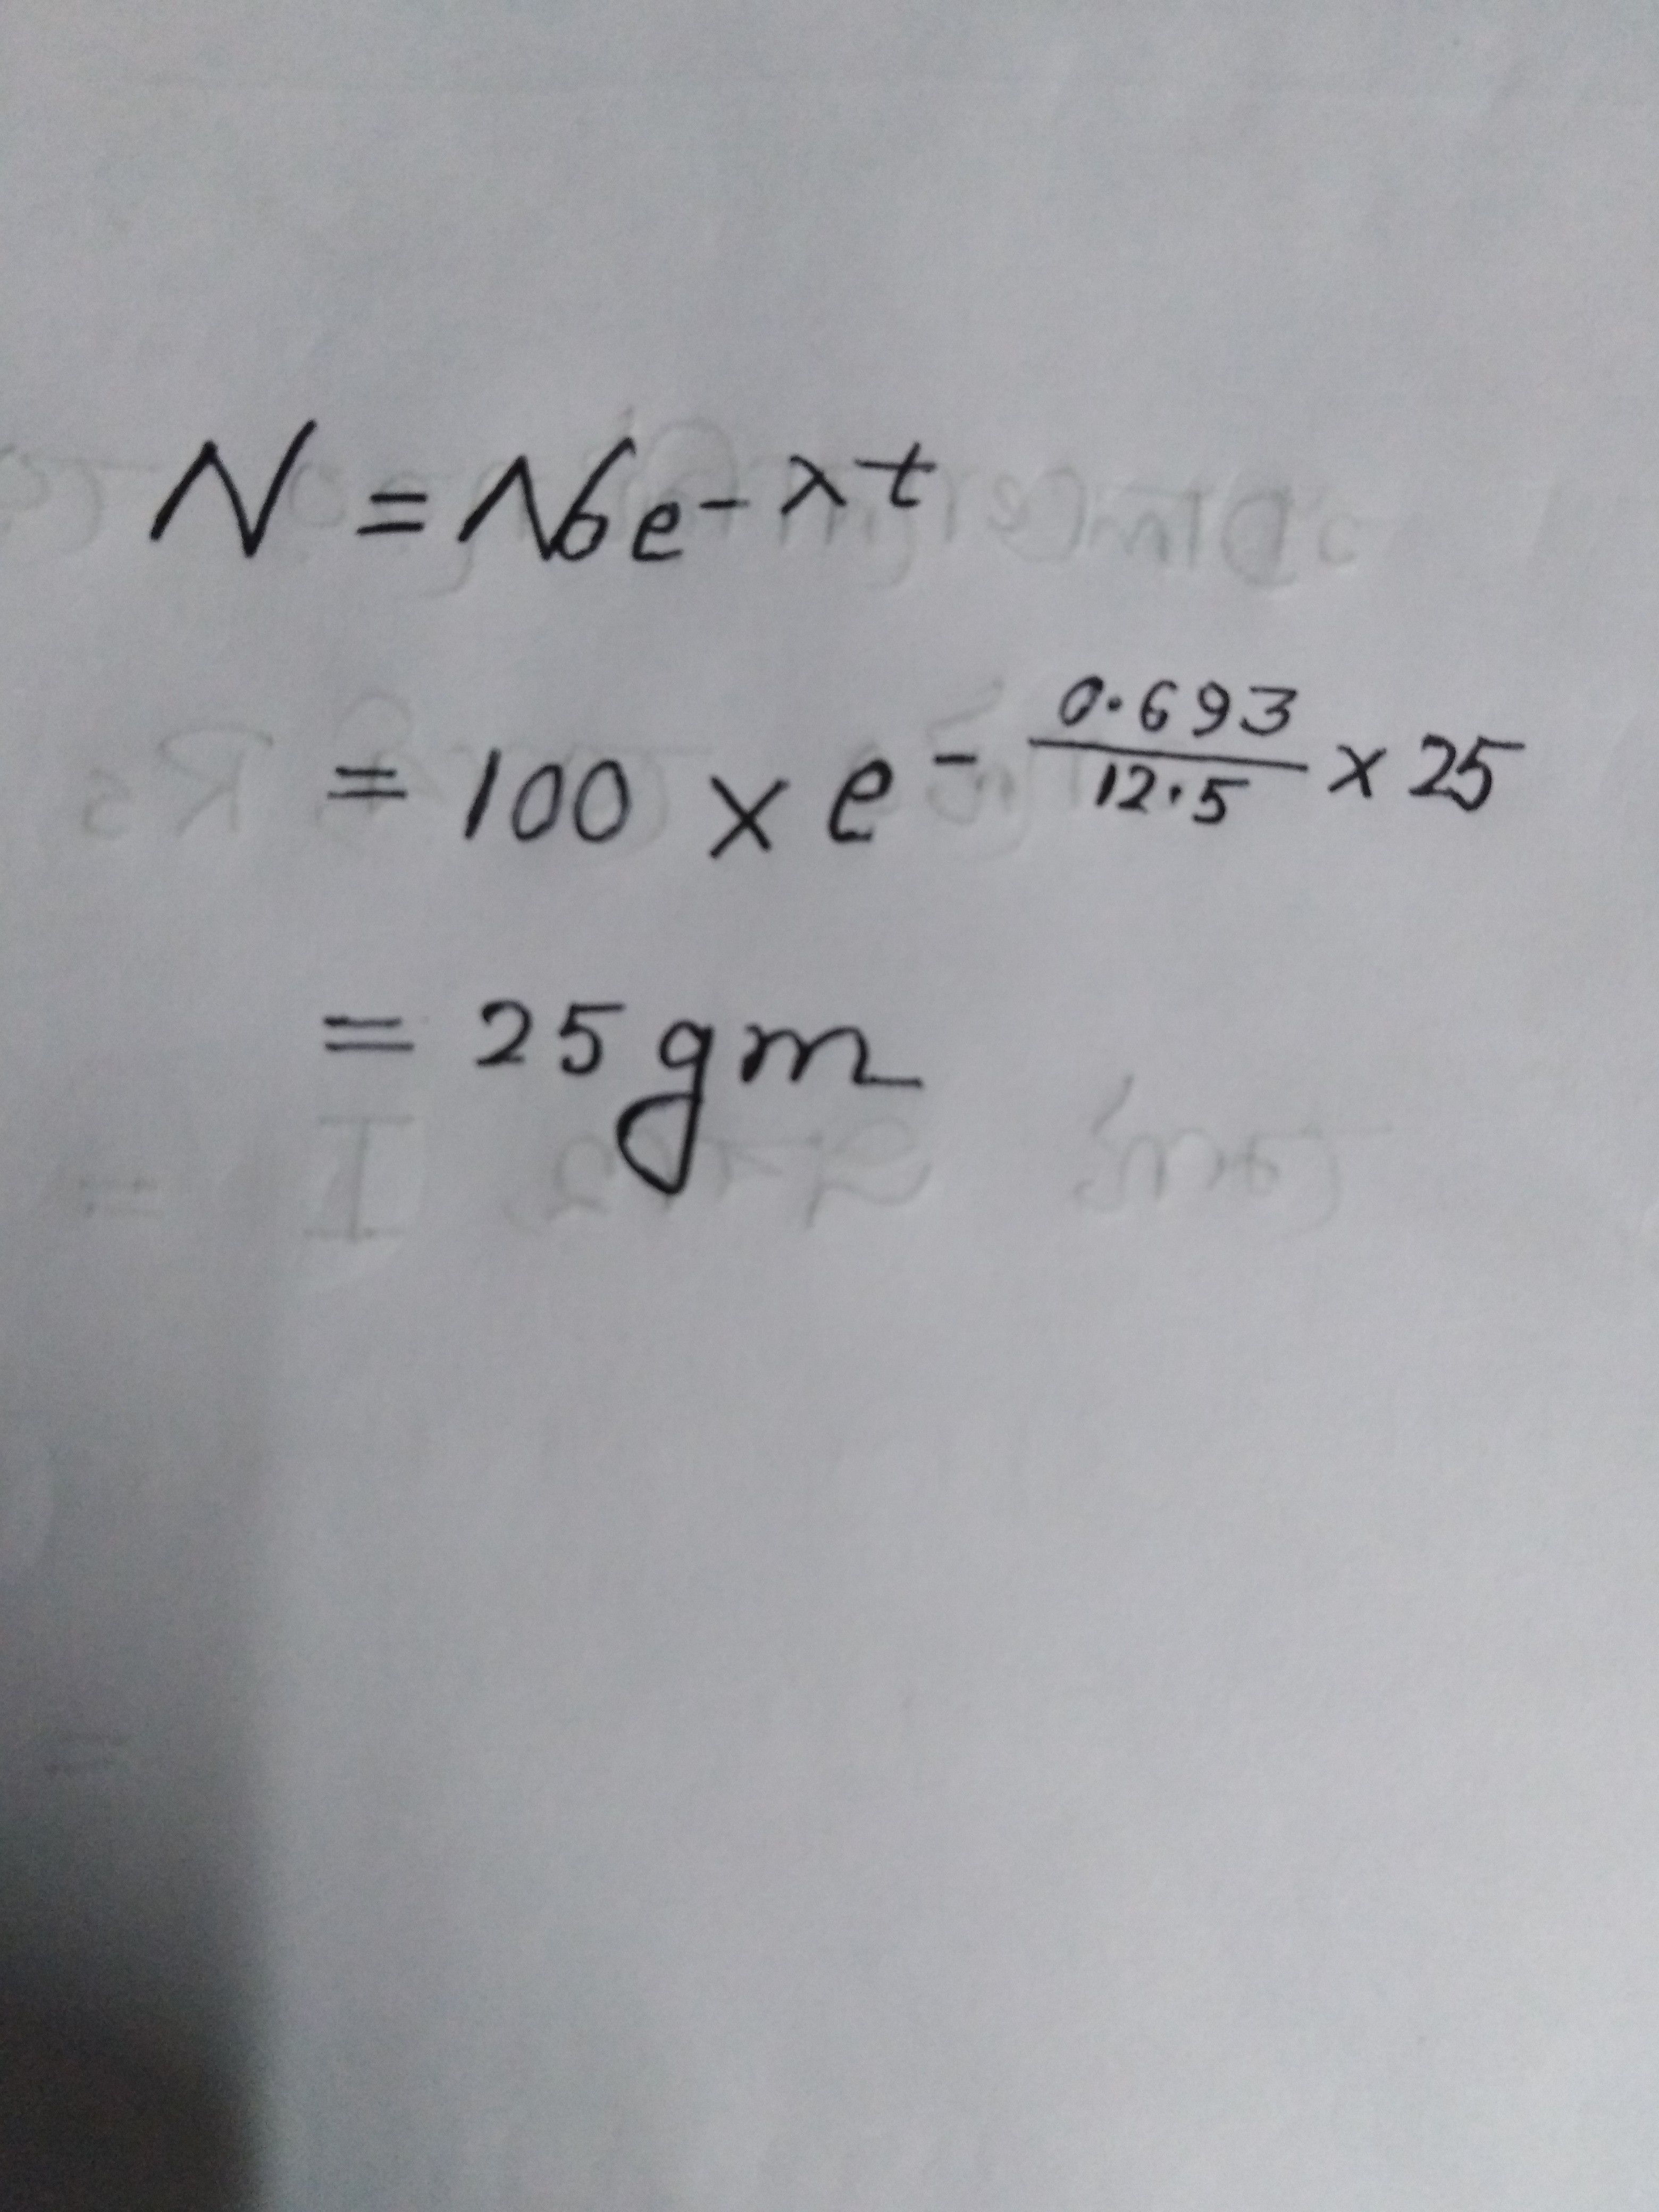 N = N₀e^-λt
= 100 × e^-0.693/12.5 × 25
= 25 gm